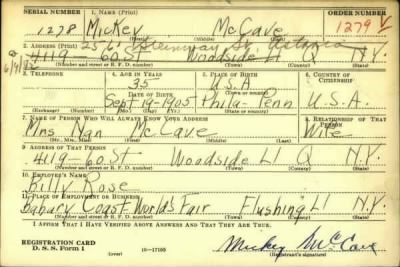 SERIAL NUMBER 1. NAME (Print) ORDER NUMBER
1278 Mickey McCave 1279 V
2. ADDRESS (Print) 25 61 Steinway St Astoria
4119 - 60 Woodside LI Q N.Y.
3. TELEPHONE 4. AGE IN YEARS 5. PLACE OF BIRTH 6. COUNTRY OF CITIZENSHIP
35 U.S.A.
DATE OF BIRTH
Sept-19-1905 Phila- Penn U.S.A.
(Exchange) (Number) (Mo.) (Day) (Yr.) (Town or county) (State or country)
7. NAME OF PERSON WHO WILL ALWAYS KNOW YOUR ADDRESS 8. RELATIONSHIP OF THAT PERSON
Mrs Nan McCave Wife
(Mr., Mrs., Miss) (First) (Middle) (Last)
9. ADDRESS OF THAT PERSON
4119-60 St Woodside LI Q N.Y.
(Number and street or R. F. D. number) (Town) (County) (State)
10. EMPLOYER'S NAME
Billy Rose
11. PLACE OF EMPLOYMENT OR BUSINESS
Babary Coast World's Fair Flushing LI N.Y.
(Number and street or R. F. D. number) (Town) (County) (State)
I AFFIRM THAT I HAVE VERIFIED ABOVE ANSWERS AND THAT THEY ARE TRUE.
REGISTRATION CARD
D. S. S. Form 1 (over) 16-17105 Mickey McCave